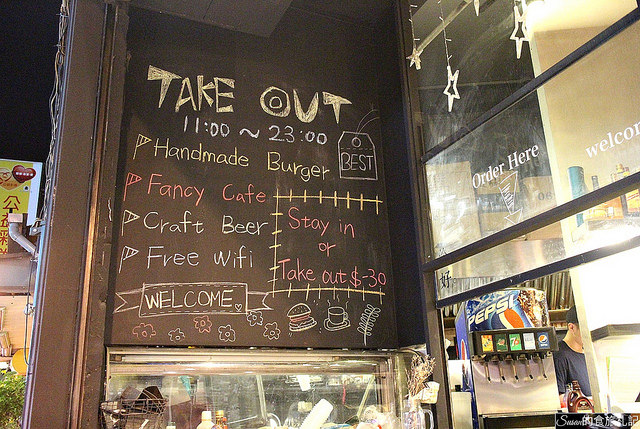 TAKE OUT
11:00 ~ 23:00
Handmade Burger
BEST
Fancy Cafe
Craft Beer
Free Wifi
Stay in
or
Take out $-30
WELCOME
Order Here
welcom
PEPSI
公益彩